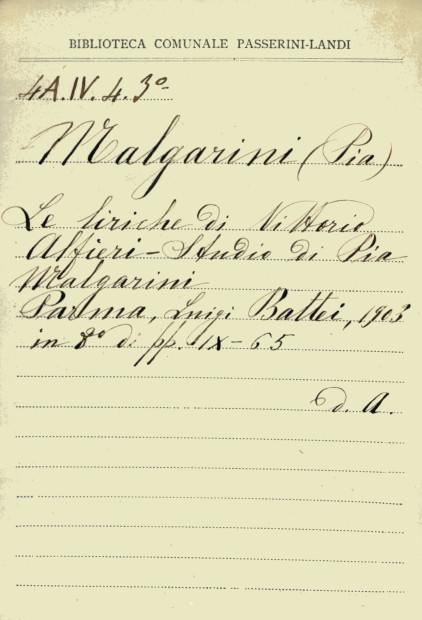 BIBLIOTECA COMUNALE PASSERINI-LANDI
4A.IV.4.3º
Malgarini (Pia)
Le liriche di Vittorio
Alfieri - Studio di Pia
Malgarini
Parma, Luigi Battei, 1903
in 8º di pp. IX-65
D. A.